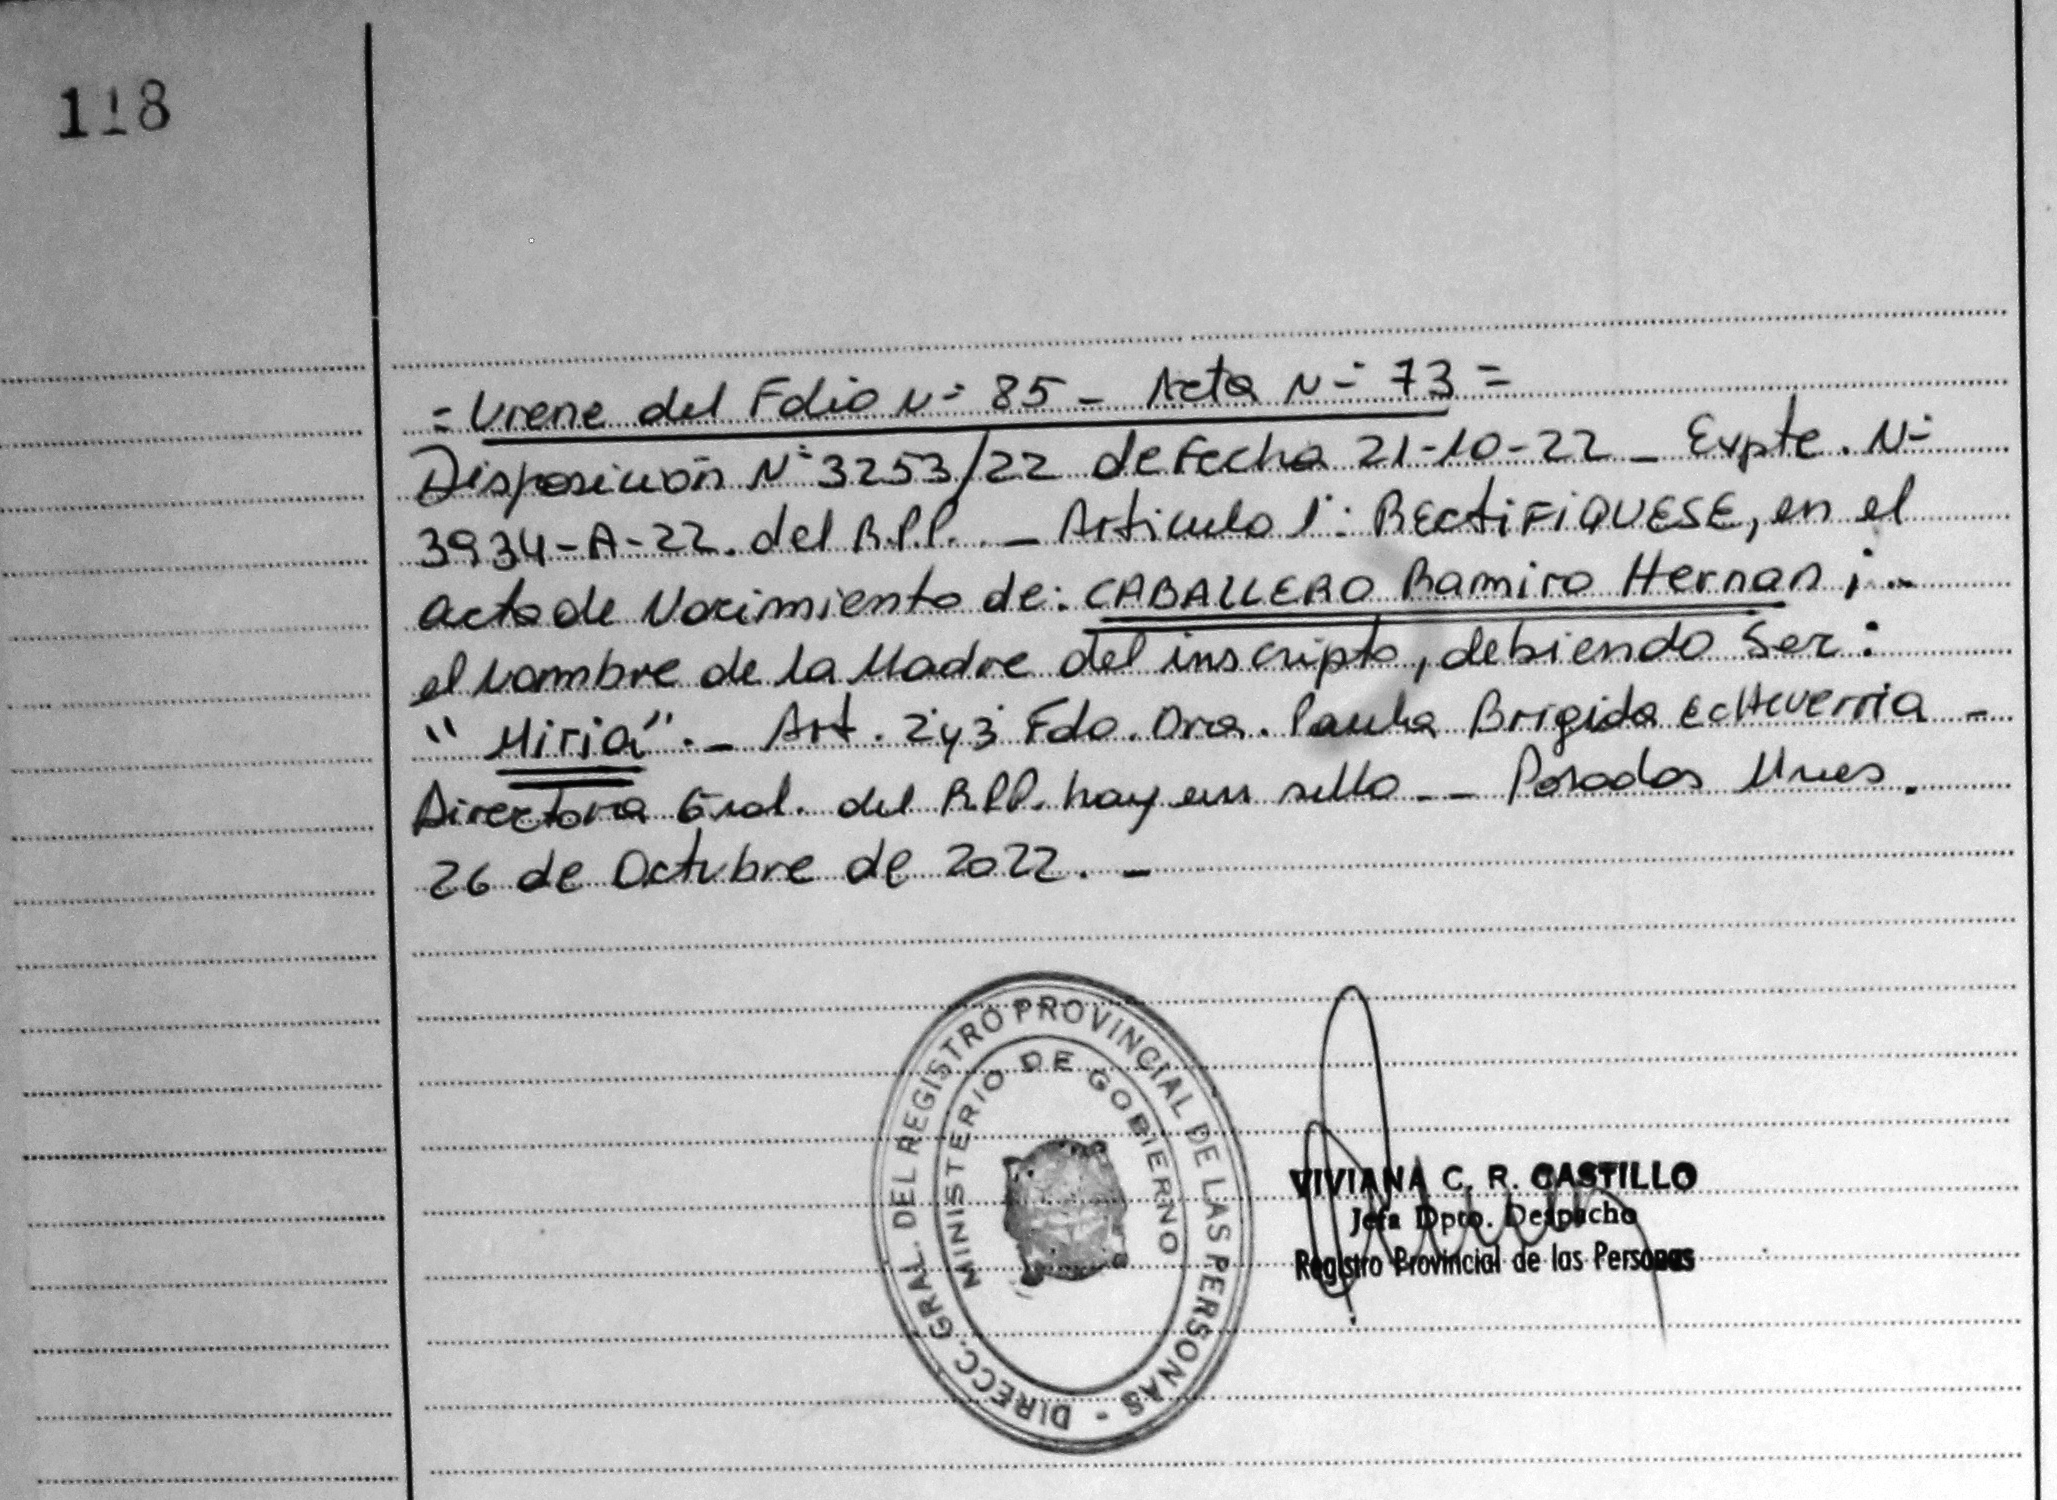 118
= Viene del Folio N° 85 - Acta N° 73 =
Disposición N° 3253/22 de Fecha 21-10-22 - Expte. N°
3934-A-22. del R.P.P. - Articulo 1°: RECTIFIQUESE, en el
acta de Nacimiento de: CABALLERO Ramiro Hernan; -
el Nombre de la Madre del inscripto, debiendo Ser:
"Miria". - Art. 2° y 3° Fdo. Dra. Paula Brigida Echeverria -
Directora Gral. del R.P.P. hay un sello -- Posadas Mnes.
26 de Octubre de 2022. -
DIRECC. GRAL. DEL REGISTRO PROVINCIAL DE LAS PERSONAS -
MINISTERIO DE GOBIERNO
VIVIANA C. R. CASTILLO
Jefa Dpto. Despacho
Registro Provincial de las Personas